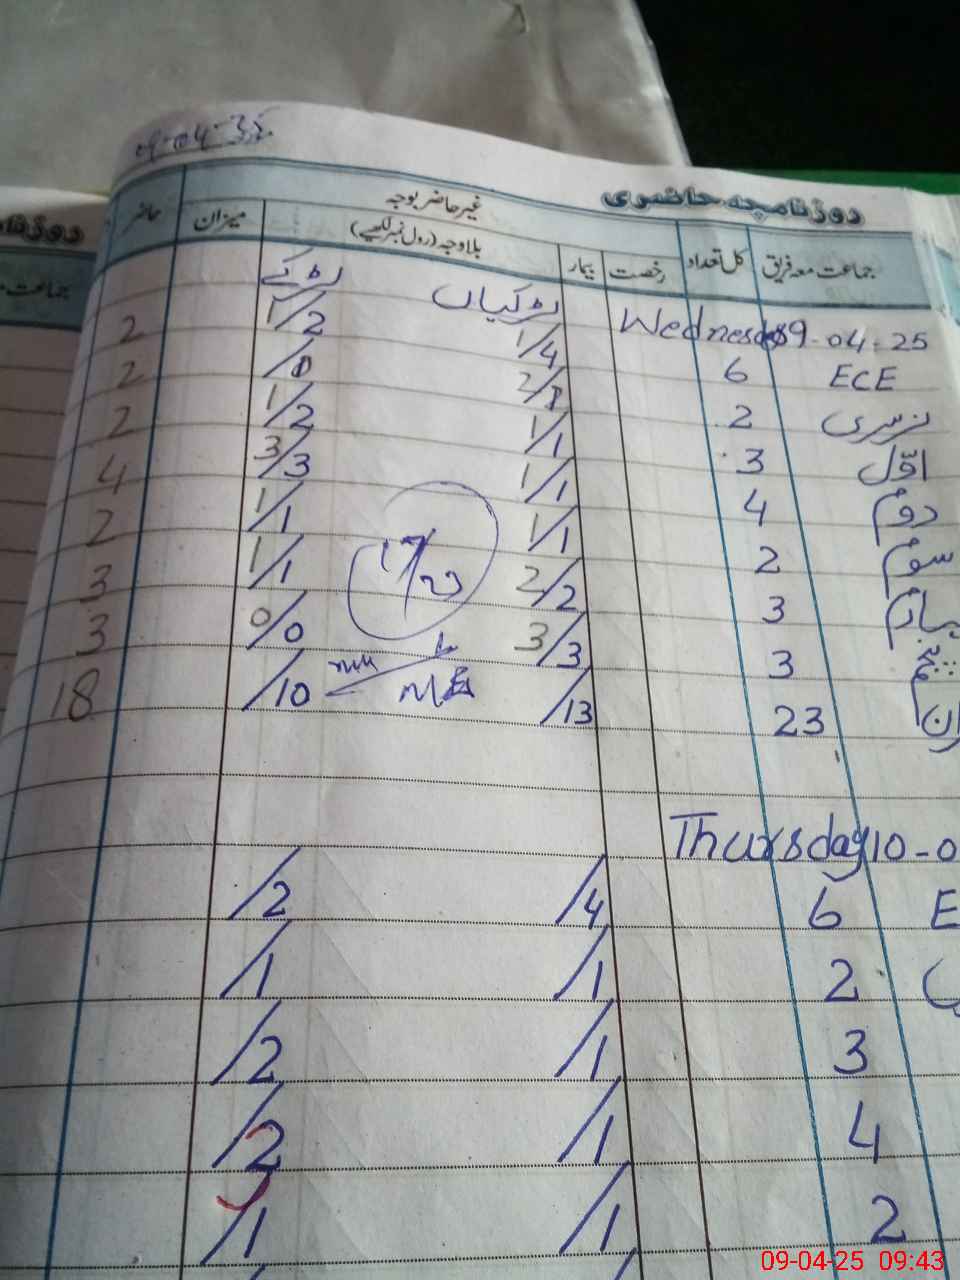 09-04-25
روزنامچہ حاضری
جماعت معہ فریق کل تعداد رخصت بیمار غیر حاضر بوجہ بلاوجہ (رول نمبر لکھیے) میزان حاضر
لڑکیاں لڑکے
Wednesday 9-04-25
ECE 6 1/4 1/2 2
نرسری 2 2
اوّل 3 1/1 1/2 2
دوم 4 1/1 3/3 4
سوم 2 1/1 1/1 2
چہارم 3 2/2 1/1 3
پنجم 3 3/3 0/0 3
23 /13 /10 18
17/23
Thursday 10-0
E 6 /4 /2
2 /1 /1
3 /1 /2
4 /1 /2
2 /1 /1
روزنا
جماعت م
09-04-25 09:43